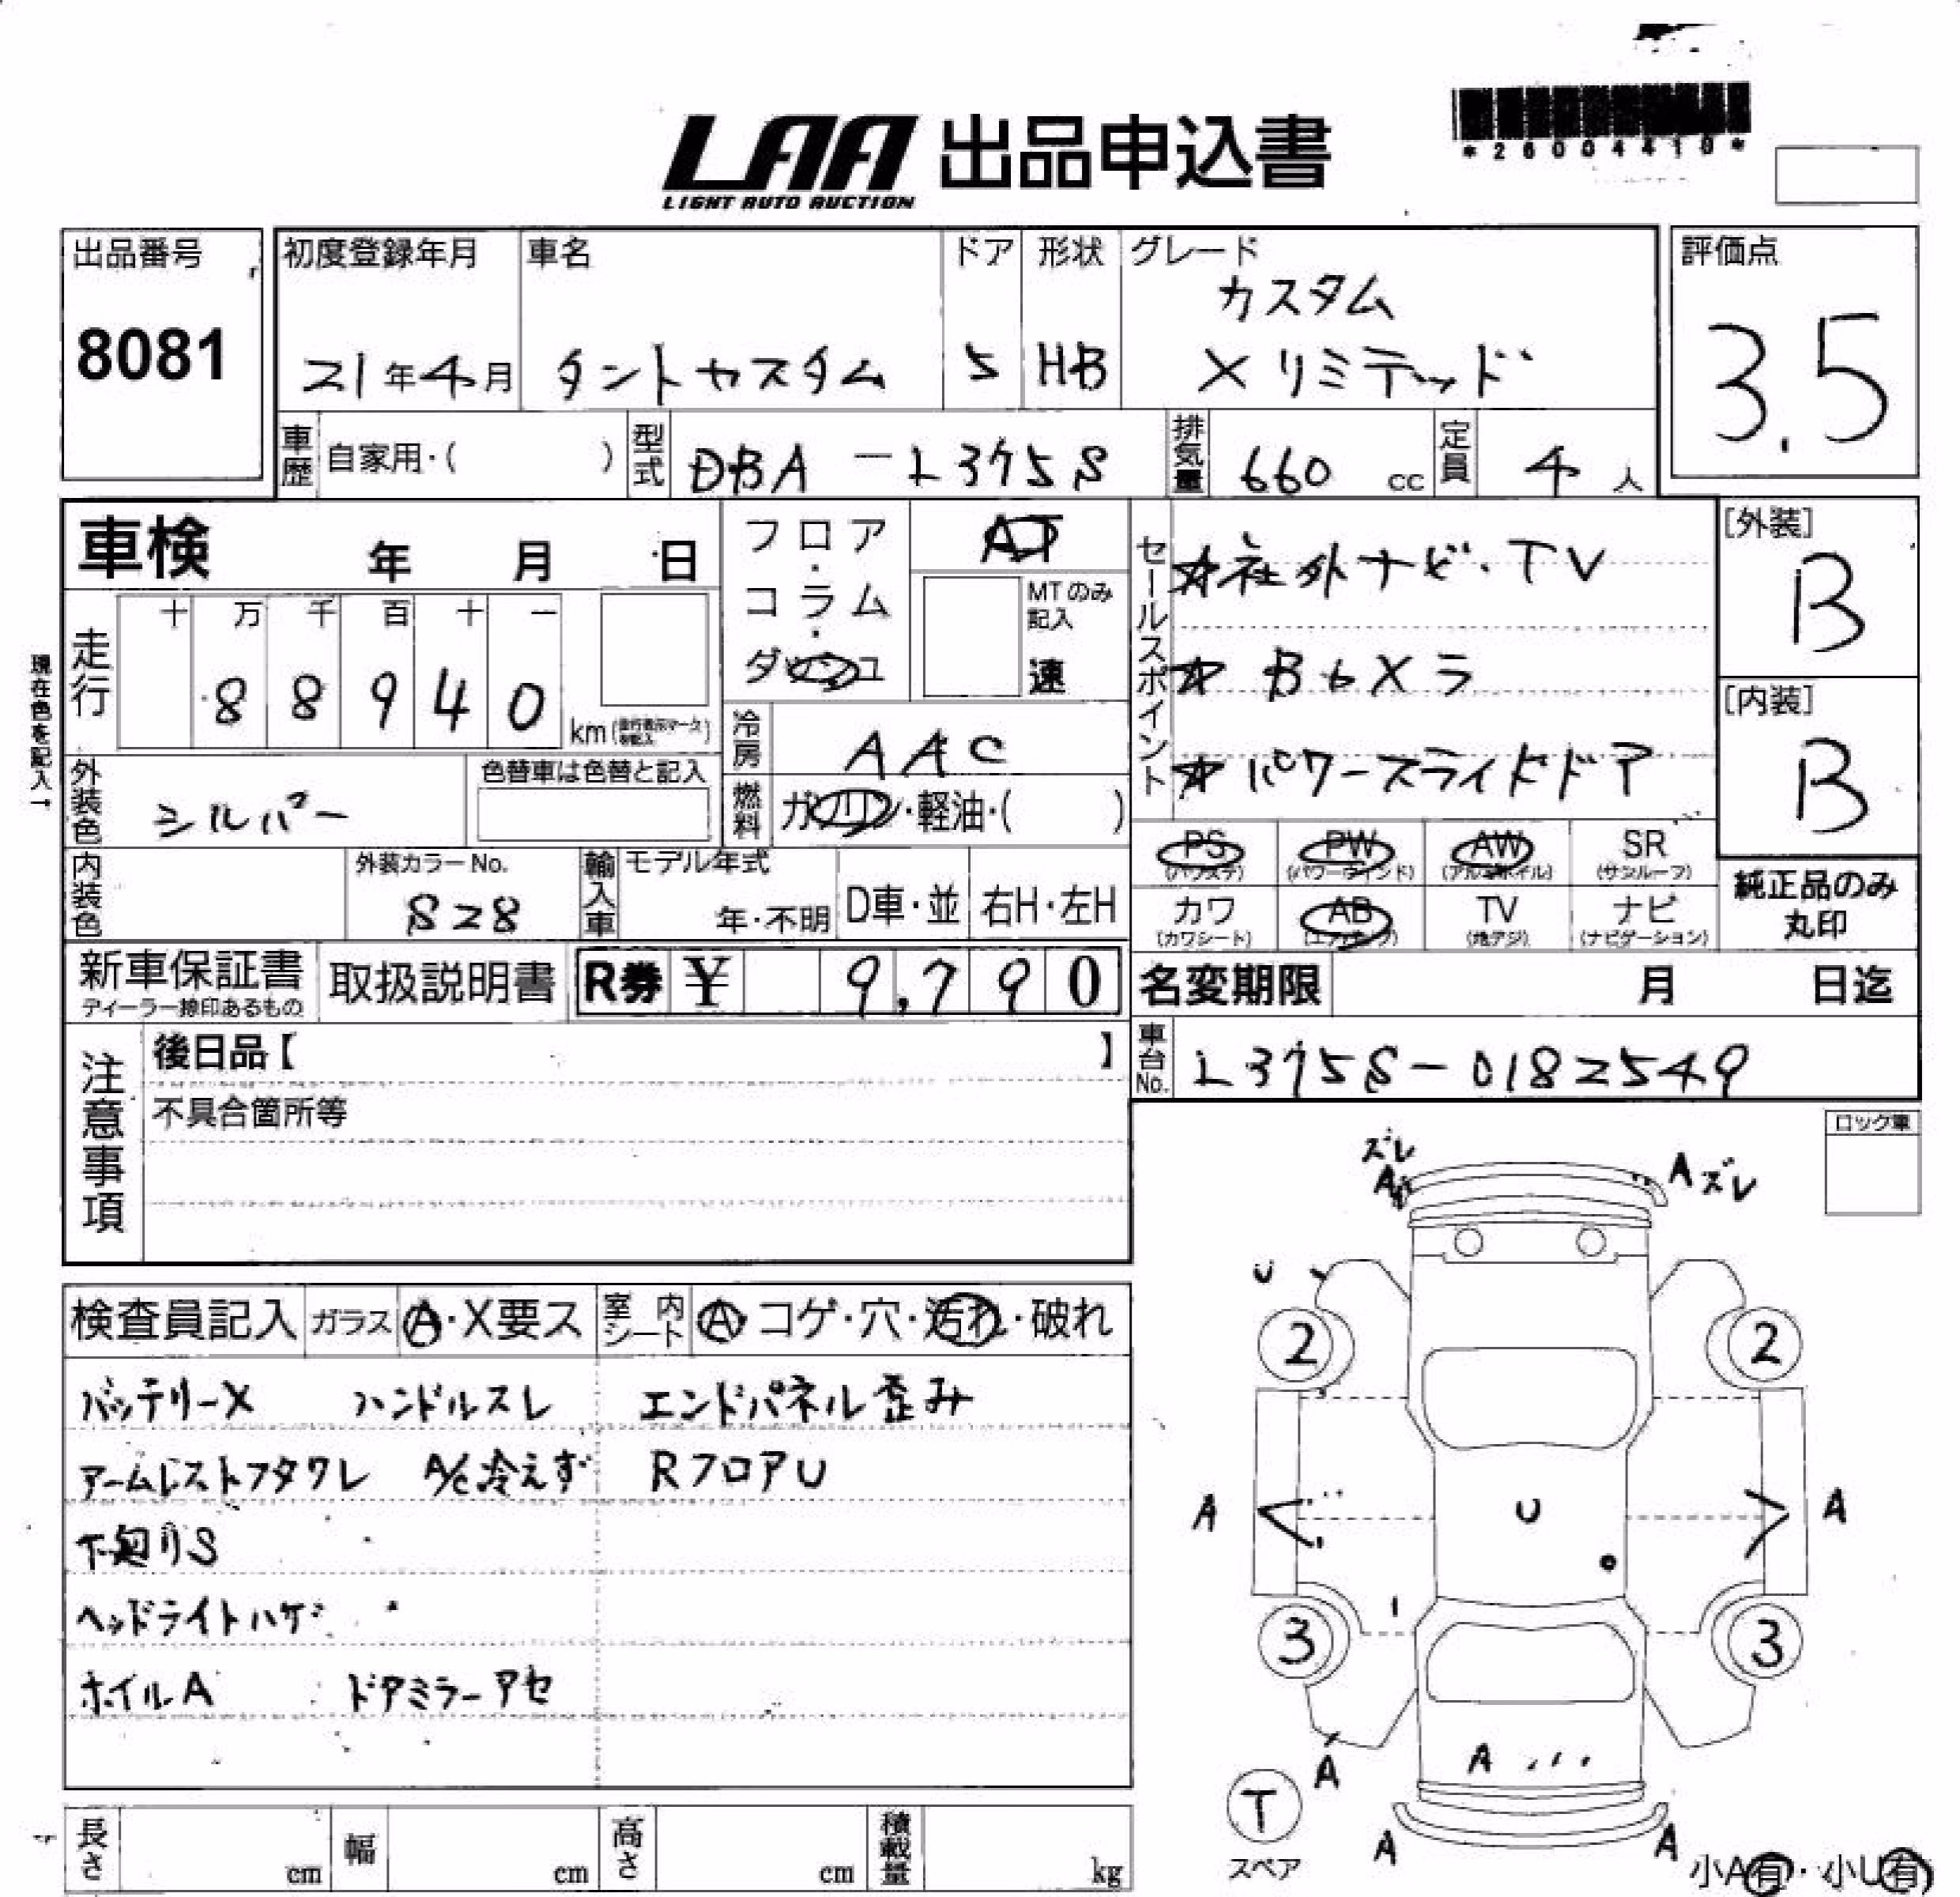 LAA 出品申込書
LIGHT AUTO AUCTION
*26004410*
出品番号
8081
初度登録年月
21年4月
車名
タントカスタム
ドア
5
形状
HB
グレード
カスタム
Xリミテッド
評価点
3.5
車歴
自家用・( )
型式
DBA-L375S
排気量
660 cc
定員
4人
車検 年 月 日
現在色を記入→
走行
十 万 千 百 十 一
8 8 9 4 0
km
外装色
シルバー
色替車は色替と記入
内装色
外装カラーNo.
828
輸入車
モデル年式
年・不明
D車・並
右H・左H
フロア・コラム・ダッシュ
AT
MTのみ
記入
速
冷房
AAC
燃料
ガソリン・軽油・( )
セールスポイント
☆社外ナビ・TV
☆B6Xラ
☆パワースライドドア
[外装]
B
[内装]
B
PS
(パワステ)
PW
(パワーウインド)
AW
(アルミホイル)
SR
(サンルーフ)
カワ
(カワシート)
AB
(エアバッグ)
TV
(地デジ)
ナビ
(ナビゲーション)
純正品のみ
丸印
新車保証書
ディーラー捺印あるもの
取扱説明書
R券 ¥ 9,790
名変期限 月 日迄
車台No.
L375S-0182549
注意事項
後日品【 】
不具合箇所等
ロック車
検査員記入
ガラス
A・X要ス
室内シート
A コゲ・穴・汚れ・破れ
バッテリーX ハンドルスレ エンドパネル歪み
アームレストフタワレ A/C冷えず RフロアU
下廻りS
ヘッドライトハゲ
ホイルA ドアミラーアセ
ズレ
A
A ズレ
U
2
2
A
U
A
3
3
A
A
T
スペア
A
A
小A有・小U有
長さ cm
幅 cm
高さ cm
積載量 kg